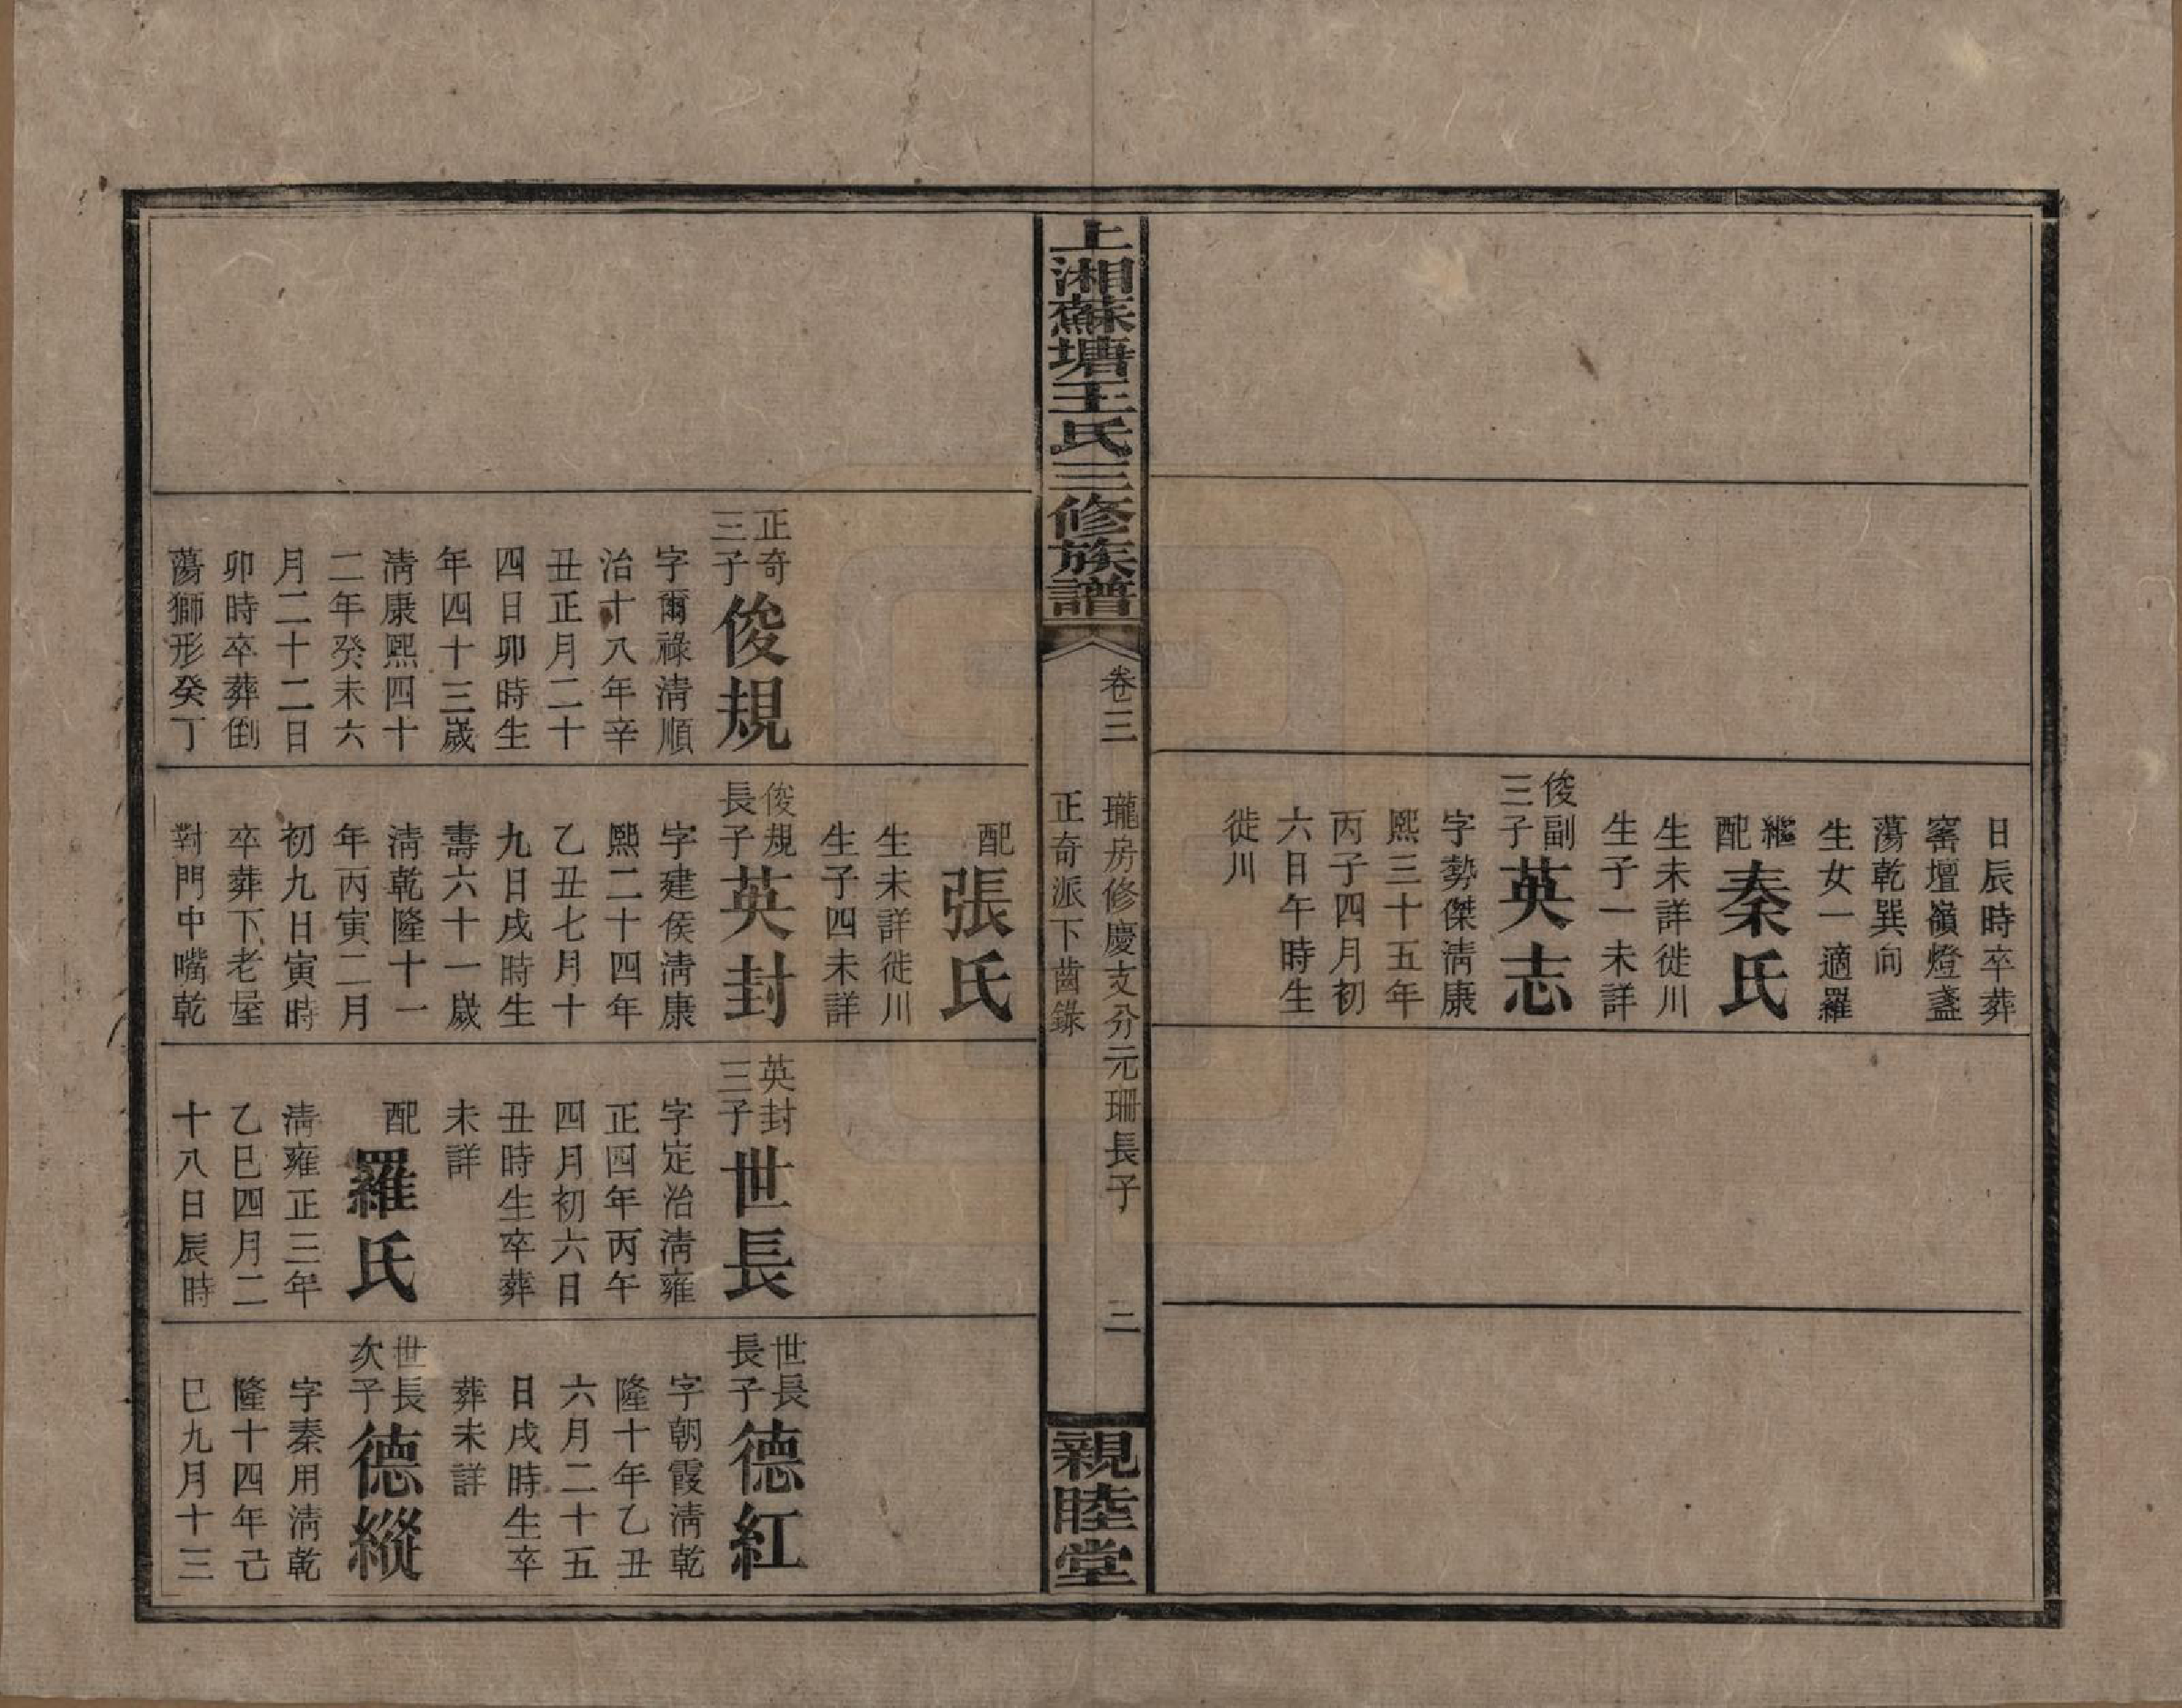 日辰時卒葬
窰壇嶺燈盞
蕩乾巽向
生女一適羅
繼配秦氏
生未詳徙川
生子一未詳
俊副三子英志
字勢傑淸康
熙三十五年
丙子四月初
六日午時生
徙川
上湘蘇塘王氏三修族譜
卷三
瓏房修慶支分元珊長子
正奇派下齒錄
二
親睦堂
正奇三子俊規
字爾祿淸順
治十八年辛
丑正月二十
四日卯時生
年四十三歲
淸康熙四十
二年癸未六
月二十二日
卯時卒葬倒
蕩獅形癸丁
配張氏
生未詳徙川
生子四未詳
俊規長子英封
字建侯淸康
熙二十四年
乙丑七月十
九日戌時生
壽六十一歲
淸乾隆十一
年丙寅二月
初九日寅時
卒葬下老屋
對門中嘴乾
英封三子世長
字定治淸雍
正四年丙午
四月初六日
丑時生卒葬
未詳
配羅氏
淸雍正三年
乙巳四月二
十八日辰時
世長長子德紅
字朝霞淸乾
隆十年乙丑
六月二十五
日戌時生卒
葬未詳
世長次子德縱
字秦用淸乾
隆十四年己
巳九月十三